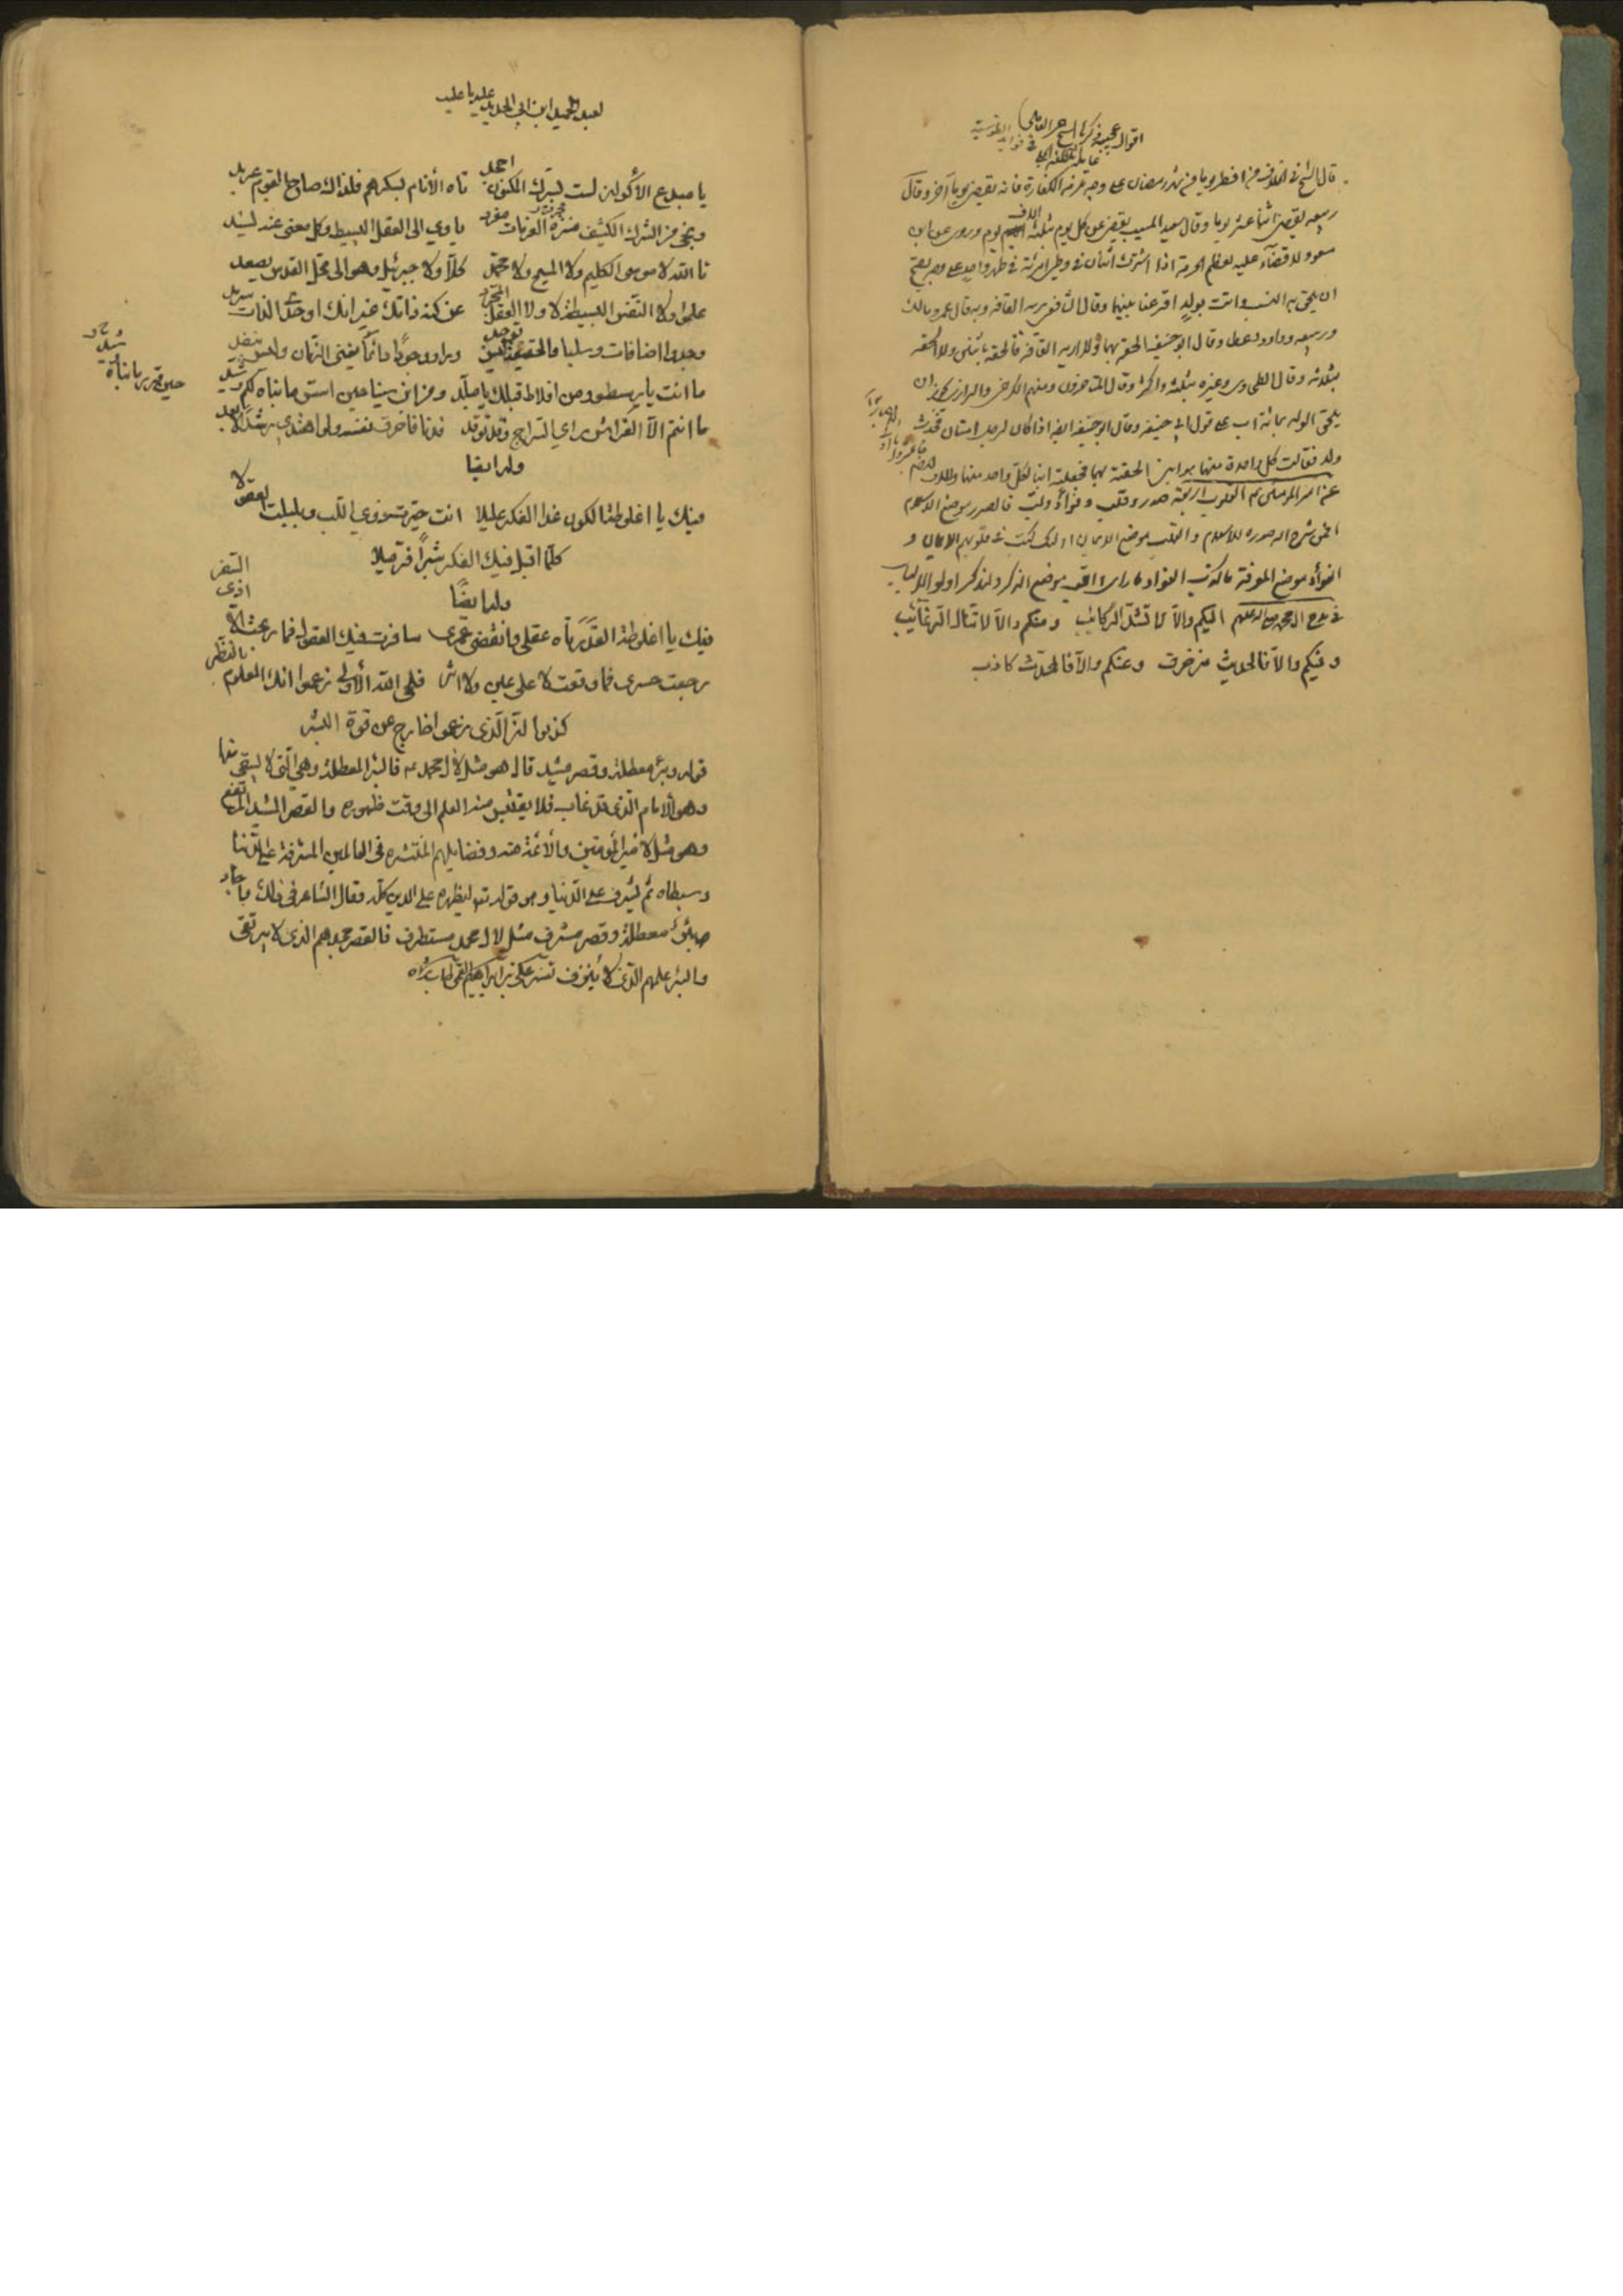 اقوال عجيبة ذكرها الشيخ الحر العاملي
في فوائد الطوسية
قال الشيخ في الخلاف من افطر يوما من شهر رمضان على وجه تلزمه الكفارة فانه يقضي يوما آخر وقال
ربيعه يقضي اثنا عشر يوما وقال سعيد المسيب يقضي عن كل يوم ثلثة الاف يوم وروى عن ابن
مسعود لا قضاء عليه لعظم الحرمة اذا اشترك اثنان في وطي امرئة في طهر واحد على وجه يصح
ان يلحق به النسب واتت بولد اقرعنا بينهما وقال الشافعي نريه القافة وبه قال مالك
وقال ابو حنيفة الحقه بهما ولا اريه القافة فالحقه باثنين ولا الحقه
بثلثه وقال الطحاوي وغيره بثلثة واكثر وقال المتاخرون ومنهم الكرخي والرازي يجوز ان
يلحق الولد بمائة اب على قول ابي حنيفة وقال ابو حنيفة ايضا اذا كان لرجل امتان فحدث
ولد فقالت كل واحدة منهما هو ابني الحقته بهما فجعلته ابنا لكل واحد منهما وللاب
عن امير المؤمنين القلوب اربعة صدر وقلب وفؤاد ولب فالصدر موضع الاسلام
افمن شرح الله صدره للاسلام والقلب موضع الايمان اولئك كتب في قلوبهم الايمان و
الفؤاد موضع المعرفة ما كذب الفؤاد ما راى واللب موضع الذكر وليذكر اولو الالباب
في مدح ال محمد اليكم والا لا تشد الركائب ومنكم والا لا تنال الرغائب
وفيكم والا فالحديث مزخرف وعنكم والا فالمحدث كاذب
لعبد الحميد ابن ابي الحديد عليه ما عليه
يا مبدع الاكوان لست لسرك المكنون اجحد تاه الأنام بسكرهم فلذاك صاح القوم عربد
ونجى من الشرك الكثيف مجرد العزمات مفرد ياوي الى العقل البسيط وكل معنى عنه يسند
تا الله لا موسى الكليم ولا المسيح ولا محمد كلا ولا جبرئيل وهو الى محل القدس يصعد
علموا ولا النفس البسيطة لا ولا العقل المجرد عن كنه ذاتك غير انك اوحدي الذات سرمد
وجدوا اضافات وسلبا والحقيقة ليس توجد وراوا وجودا دائما يفنى الزمان وليس ينفد
ما انت يا رسطو ومن افلاط قبلك يا مبلد ومن ابن سينا حين اسس ما بناه لكم وشيد
ما انتم الا الفراش راى السراج وقد توقد فدنا فاحرق نفسه ولو اهتدى رشدا لابعد
حين قرر ما بناه وشيد
وله ايضا
فيك يا اغلوطة الكون غدا الفكر عليلا انت حيرت ذوي اللب وبلبلت العقولا
كلما اقبل فيك الفكر شبرا فر ميلا
وله ايضا
فيك يا اغلوطة الفكر تاه عقلي وانقضى عمري سافرت فيك العقول فما ربحت الا اذى السفر
رجعت حسرى فما وقعت لا على عين ولا اثر فلحى الله الأولى زعموا انك المعلوم بالنظر
كذبوا ان الذي زعموا خارج عن قوة البشر
قوله وبئر معطلة وقصر مشيد قال هو مثل لال محمد فالبئر المعطلة وهي التي لا يستقى منها
وهو الامام الذي قد غاب فلا يقتبس منه العلم الى وقت ظهوره والقصر المشيد المرتفع
وهو مثل لامير المؤمنين والأئمة منه وفضايلهم المنتشره في العالمين المشرفة على الدنيا
ثم يشرف على الدنيا وهو قوله ليظهره على الدين كله وقال الشاعر في ذلك
بئر معطلة وقصر مشرف مثل لال محمد مستطرف فالقصر مجدهم الذي لا يرتقى
والبئر علمهم الذي لا ينزف تفسير علي بن ابراهيم القمي طاب ثراه